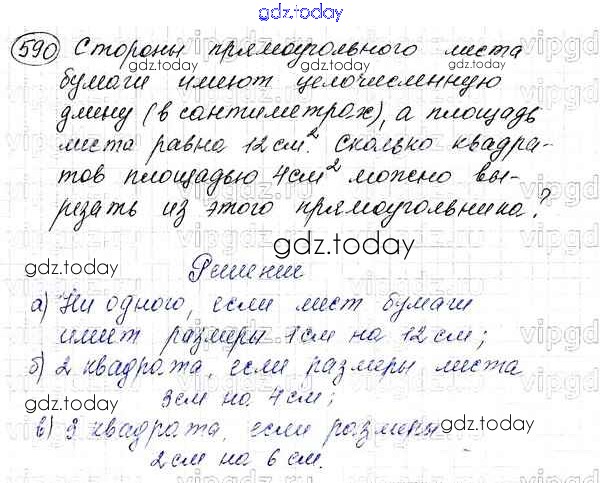 gdz.today
590 Стороны прямоугольного листа
бумаги имеют целочисленную
длину (в сантиметрах), а площадь
листа равна 12 см². Сколько квадра-
тов площадью 4 см² можно вы-
резать из этого прямоугольника?
gdz.today
gdz.today Решение gdz.today
а) Ни одного, если лист бумаги
имеет размеры 1 см на 12 см;
б) 2 квадрата, если размеры листа
gdz.today 3 см на 4 см; gdz.today
в) 3 квадрата, если размеры
2 см на 6 см.